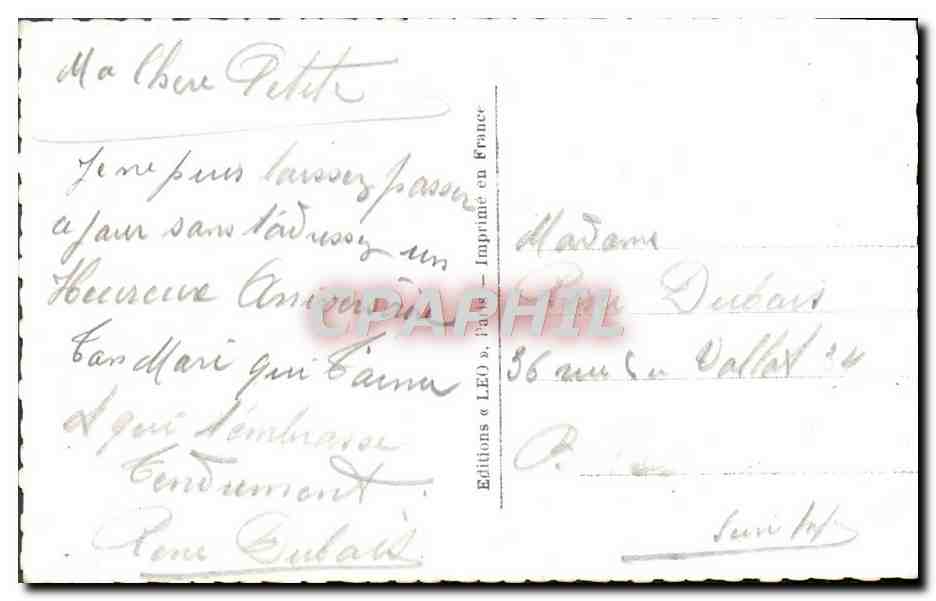 Ma Chere Petite
Je ne puis laissez passer
ce jour sans t'adressez un
Heureux Anniversaire
Ton Mari qui t'aime
et qui t'embrasse
Tendrement.
Rene Dubois
Editions « LEO », Paris — Imprimé en France
Madame
Rene Dubois
36 rue
CPAPHIL